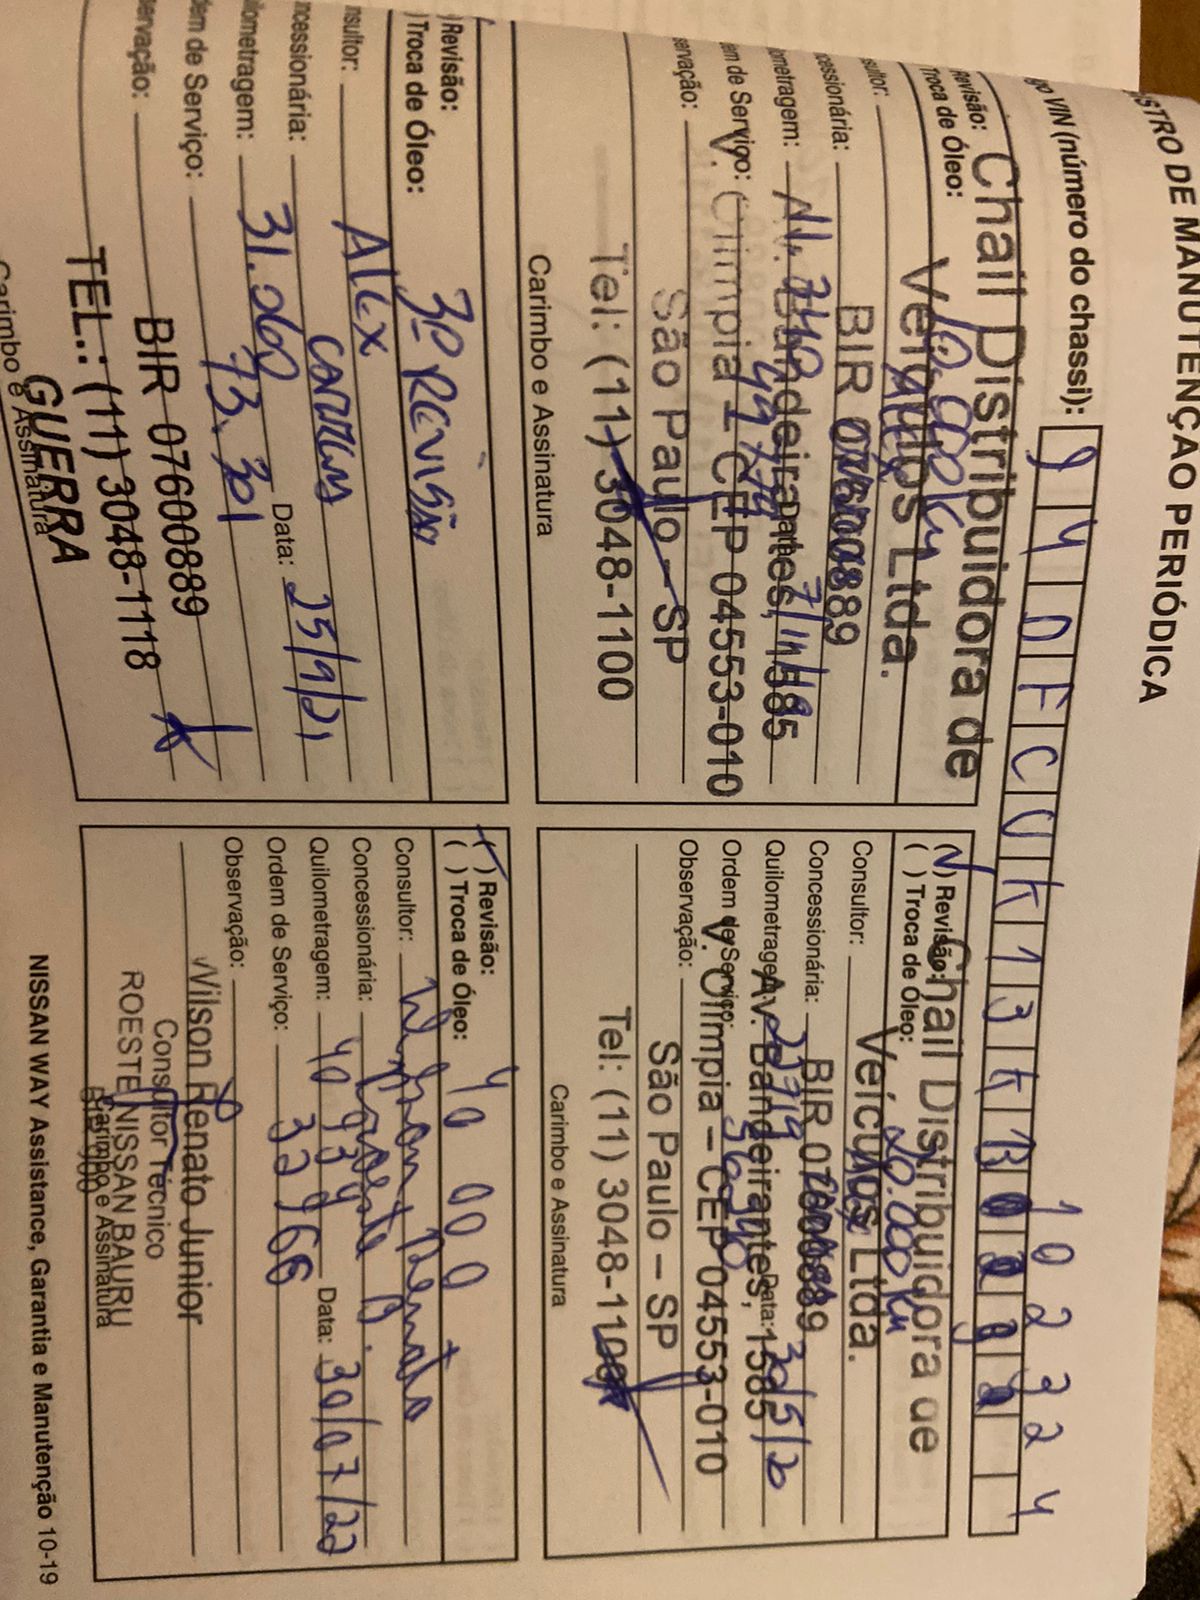 STRO DE MANUTENÇÃO PERIÓDICA
go VIN (número do chassi):
9 4 D F C U K 1 3 K B
1 0 2 2 2 4
Revisão:
Troca de Óleo:
10.000 Km
sultor:
Alex
cessionária:
ometragem:
Data:
em de Serviço:
servação:
Chail Distribuidora de
Veículos Ltda.
BIR 07600889
Av. Bandeirantes, 1585
V. Olímpia – CEP 04553-010
São Paulo – SP
Tel: (11) 3048-1100
Carimbo e Assinatura
(✓) Revisão:
( ) Troca de Óleo:
20.000 Km
Consultor:
Alex
Concessionária:
Quilometragem:
Data: 30/5/20
Ordem de Serviço:
Observação:
Chail Distribuidora de
Veículos Ltda.
BIR 07600889
Av. Bandeirantes, 1585
V. Olímpia – CEP 04553-010
São Paulo – SP
Tel: (11) 3048-1100
Carimbo e Assinatura
) Revisão:
) Troca de Óleo:
3º REVISÃO
nsultor: ALEX
ncessionária:
ilometragem: 31.068 Data: 25/9/21
dem de Serviço: 73.301
servação:
BIR 07600889
TEL.: (11) 3048-1118
GUERRA
Carimbo e Assinatura
(✓) Revisão: 40 000
( ) Troca de Óleo:
Consultor: Wilson Renato
Concessionária: Roeste
Quilometragem: 40 939 Data: 30/07/22
Ordem de Serviço: 32966
Observação:
Wilson Renato Junior
Consultor Técnico
ROESTE NISSAN BAURU
Carimbo e Assinatura
NISSAN WAY Assistance, Garantia e Manutenção 10-19